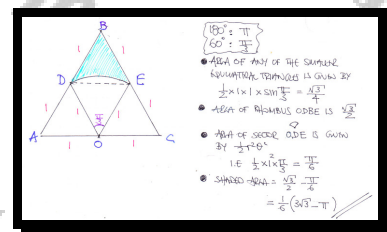 B
1 1
D E
1 1 1 1
π/3
A 1 O 1 C
180° : π
60° : π/3
● AREA OF ANY OF THE SMALLER
EQUILATERAL TRIANGLES IS GIVEN BY
1/2 × 1 × 1 × sin π/3 = √3/4
● AREA OF RHOMBUS ODBE IS √3/2
● AREA OF SECTOR ODE IS GIVEN
BY 1/2 r²θᶜ
I.E 1/2 × 1² × π/3 = π/6
● SHADED AREA = √3/2 - π/6
= 1/6 (3√3 - π)